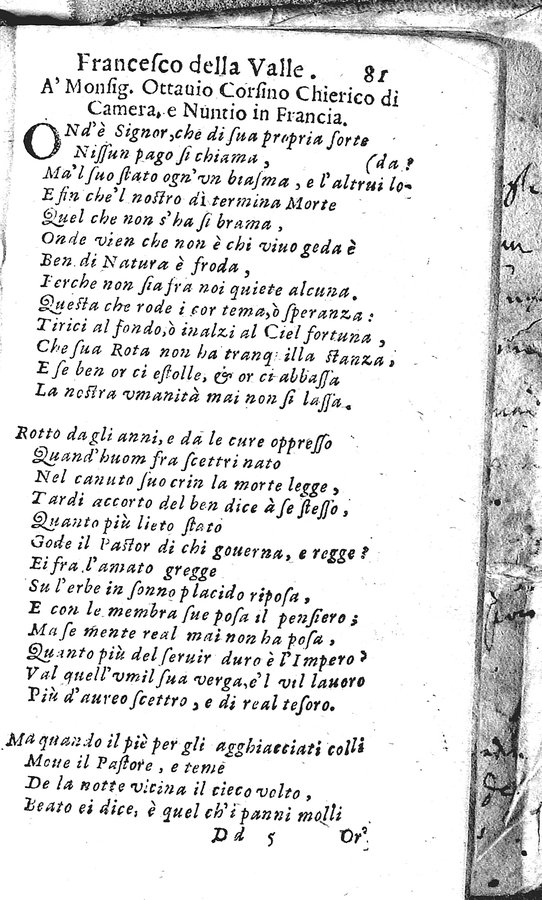 Francesco della Valle. 81
A' Monsig. Ottauio Corsino Chierico di
Camera, e Nuntio in Francia.
ONd'è Signor, che di sua propria sorte
Nissun pago si chiama, (da?
Ma'l suo stato ogn'vn biasma, e l'altrui lo-
E sin che'l nostro dì termina Morte
Quel che non s'ha si brama,
Onde vien che non è chi viuo geda è
Ben di Natura è froda,
Perche non sia fra noi quiete alcuna.
Questa che rode i cor tema, ò speranza:
Tirici al fondo, ò inalzi al Ciel fortuna,
Che sua Rota non ha tranquilla stanza,
E se ben or ci estolle, & or ci abbassa
La nostra vmanità mai non si lassa.
Rotto dagli anni, e da le cure oppresso
Quand'huom fra scettri nato
Nel canuto suo crin la morte legge,
Tardi accorto del ben dice à se stesso,
Quanto più lieto stato
Gode il Pastor di chi gouerna, e regge?
Ei fra l'amato gregge
Su l'erbe in sonno placido riposa,
E con le membra sue posa il pensiero;
Ma se mente real mai non ha posa,
Quanto più del seruir duro è l'Impero?
Val quell'vmil sua verga, e'l vil lauoro
Più d'aureo scettro, e di real tesoro.
Ma quando il piè per gli agghiacciati colli
Moue il Pastore, e teme
De la notte vicina il cieco volto,
Beato ei dice, è quel ch'i panni molli
Dd 5 Or'